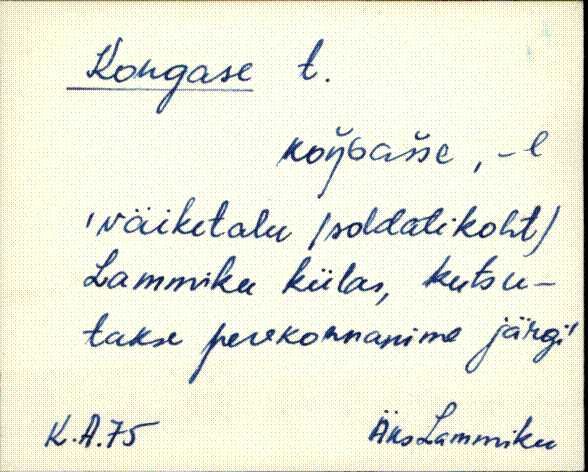 Kongase t.
koŋ̆Gašše, -l
'väiketalu /soldatikoht/
Lammiku külas, kutsu-
takse perekonnanime järgi'
K.A.75 Äks Lammiku